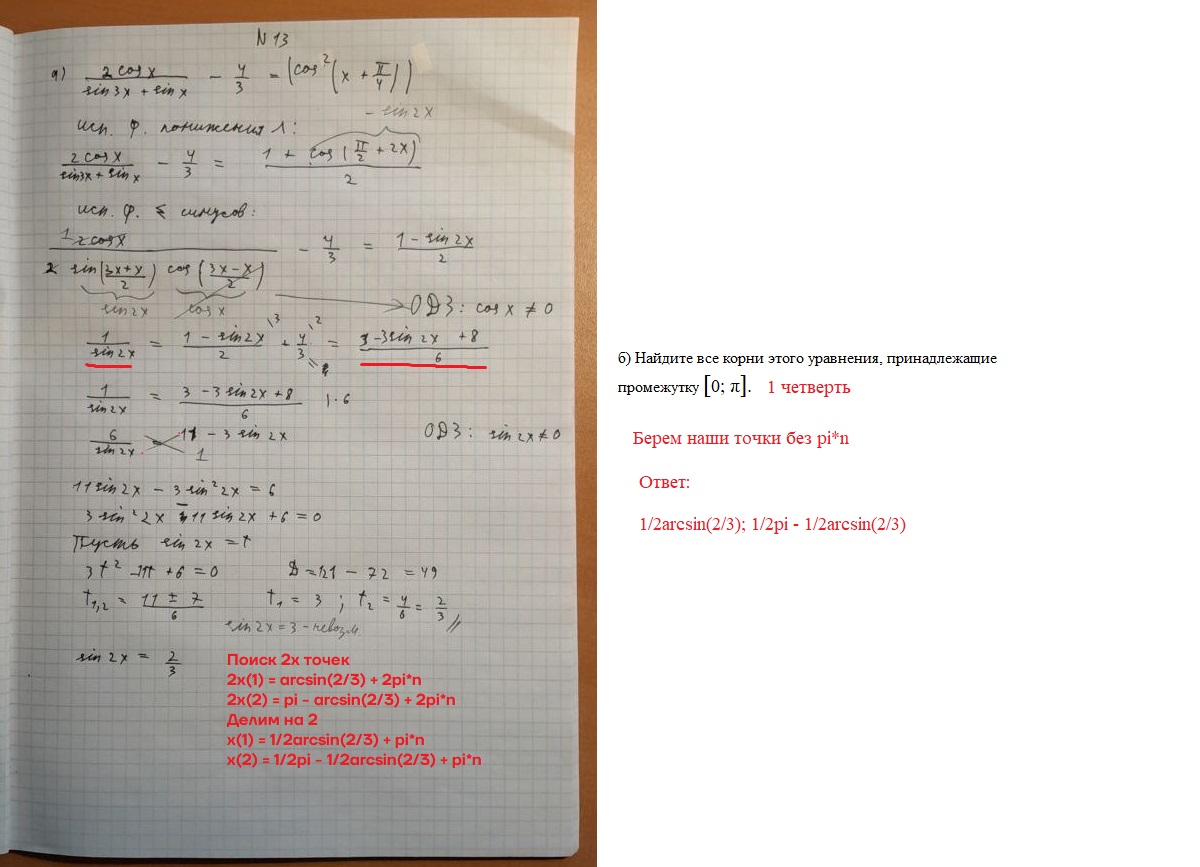 N 13
а) 2 cos x / (sin 3x + sin x) − 4/3 = (cos²(x + π/4))
− sin 2x
исп. ф. понижения 1:
2 cos x / (sin 3x + sin x) − 4/3 = (1 + cos(π/2 + 2x)) / 2
исп. ф. Σ синусов:
1 2 cos x / (2 sin((3x + x)/2) cos((3x − x)/2)) − 4/3 = (1 − sin 2x) / 2
sin 2x cos x → ОДЗ: cos x ≠ 0
1 / sin 2x = (1 − sin 2x) / 2 \3 + 4/3 \2 = (3 − 3 sin 2x + 8) / 6
1 / sin 2x = (3 − 3 sin 2x + 8) / 6 | · 6
6 / sin 2x = (11 − 3 sin 2x) / 1 ОДЗ: sin 2x ≠ 0
11 sin 2x − 3 sin² 2x = 6
3 sin² 2x − 11 sin 2x + 6 = 0
Пусть sin 2x = t
3t² − 11t + 6 = 0 D = 121 − 72 = 49
t1,2 = (11 ± 7) / 6 t1 = 3 ; t2 = 4/6 = 2/3 //
sin 2x = 3 – невозм.
sin 2x = 2/3
Поиск 2х точек
2x(1) = arcsin(2/3) + 2pi*n
2x(2) = pi - arcsin(2/3) + 2pi*n
Делим на 2
x(1) = 1/2arcsin(2/3) + pi*n
x(2) = 1/2pi - 1/2arcsin(2/3) + pi*n
б) Найдите все корни этого уравнения, принадлежащие
промежутку [0; π]. 1 четверть
Берем наши точки без pi*n
Ответ:
1/2arcsin(2/3); 1/2pi - 1/2arcsin(2/3)